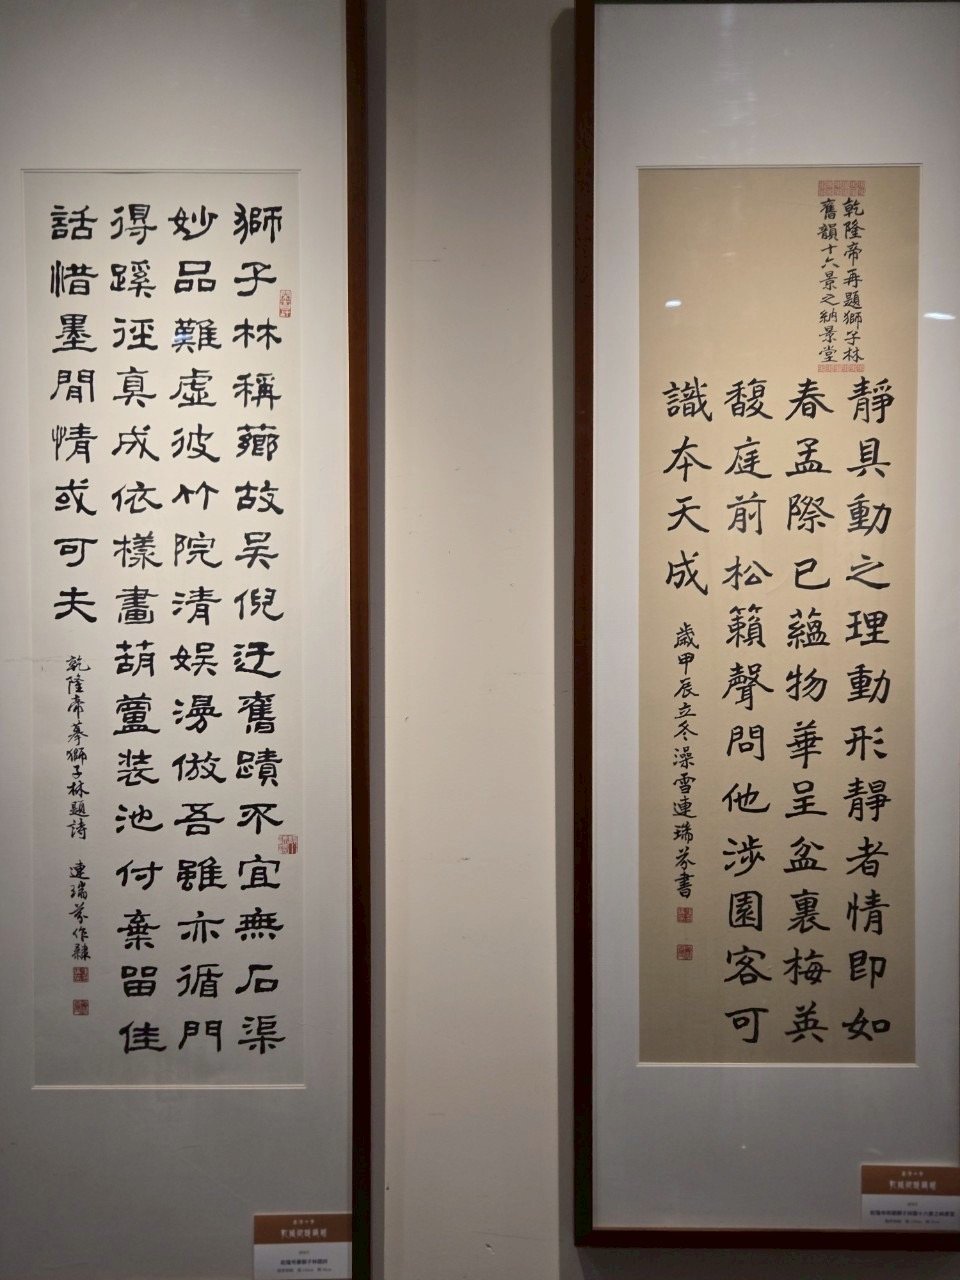 乾隆帝再題獅子林
舊韻十六景之納景堂
靜具動之理動形靜者情即如
春孟際已蘊物華呈盆裏梅英
馥庭前松籟聲問他涉園客可
識本天成
歲甲辰立冬澡雪連瑞芬書
獅子林稱薌故吳倪迂舊蹟不宜無石渠
妙品難虛彼竹院清娛漫倣吾雖亦循門
得蹊徑真成依樣畫葫蘆裝池付棄留佳
話惜墨閒情或可夫
乾隆帝摹獅子林題詩 連瑞芬作隸